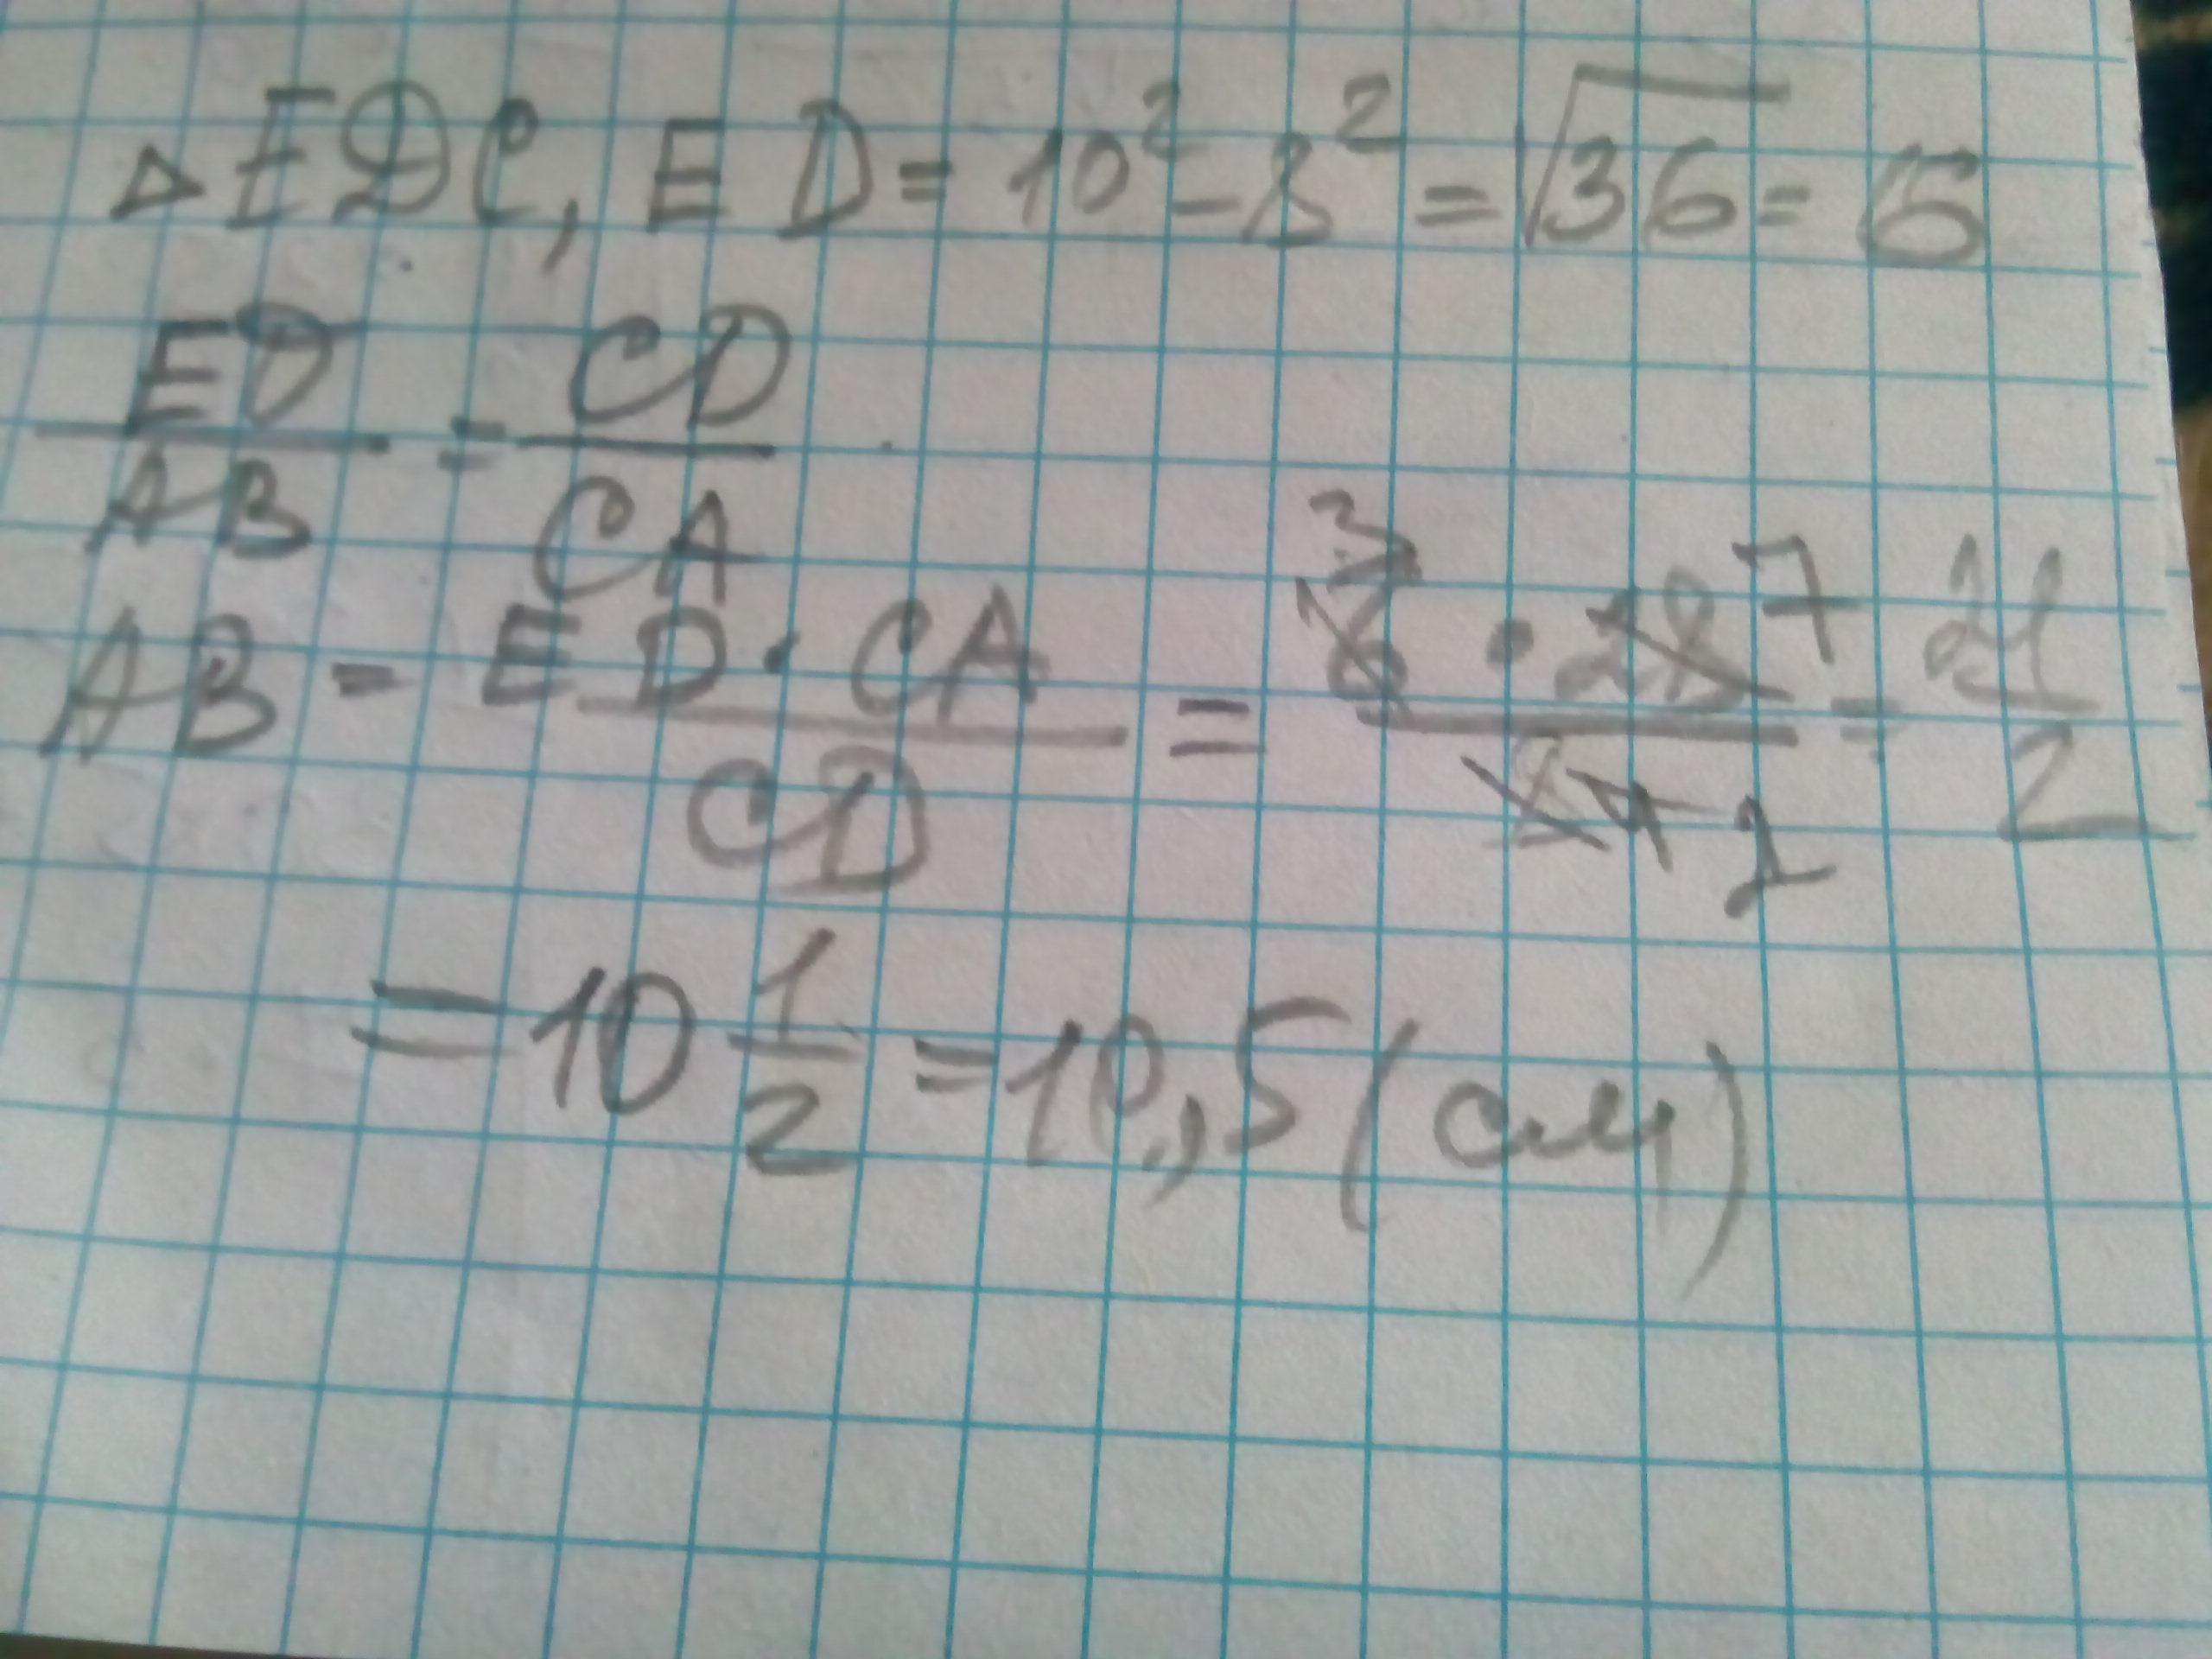 △EDC, ED = 10² - 8² = √36 = 6
ED/AB = CD/CA
AB = ED · CA/CD = 6 3 · 28 7/8 4 2 = 21/2
= 10 1/2 = 10,5 (см)